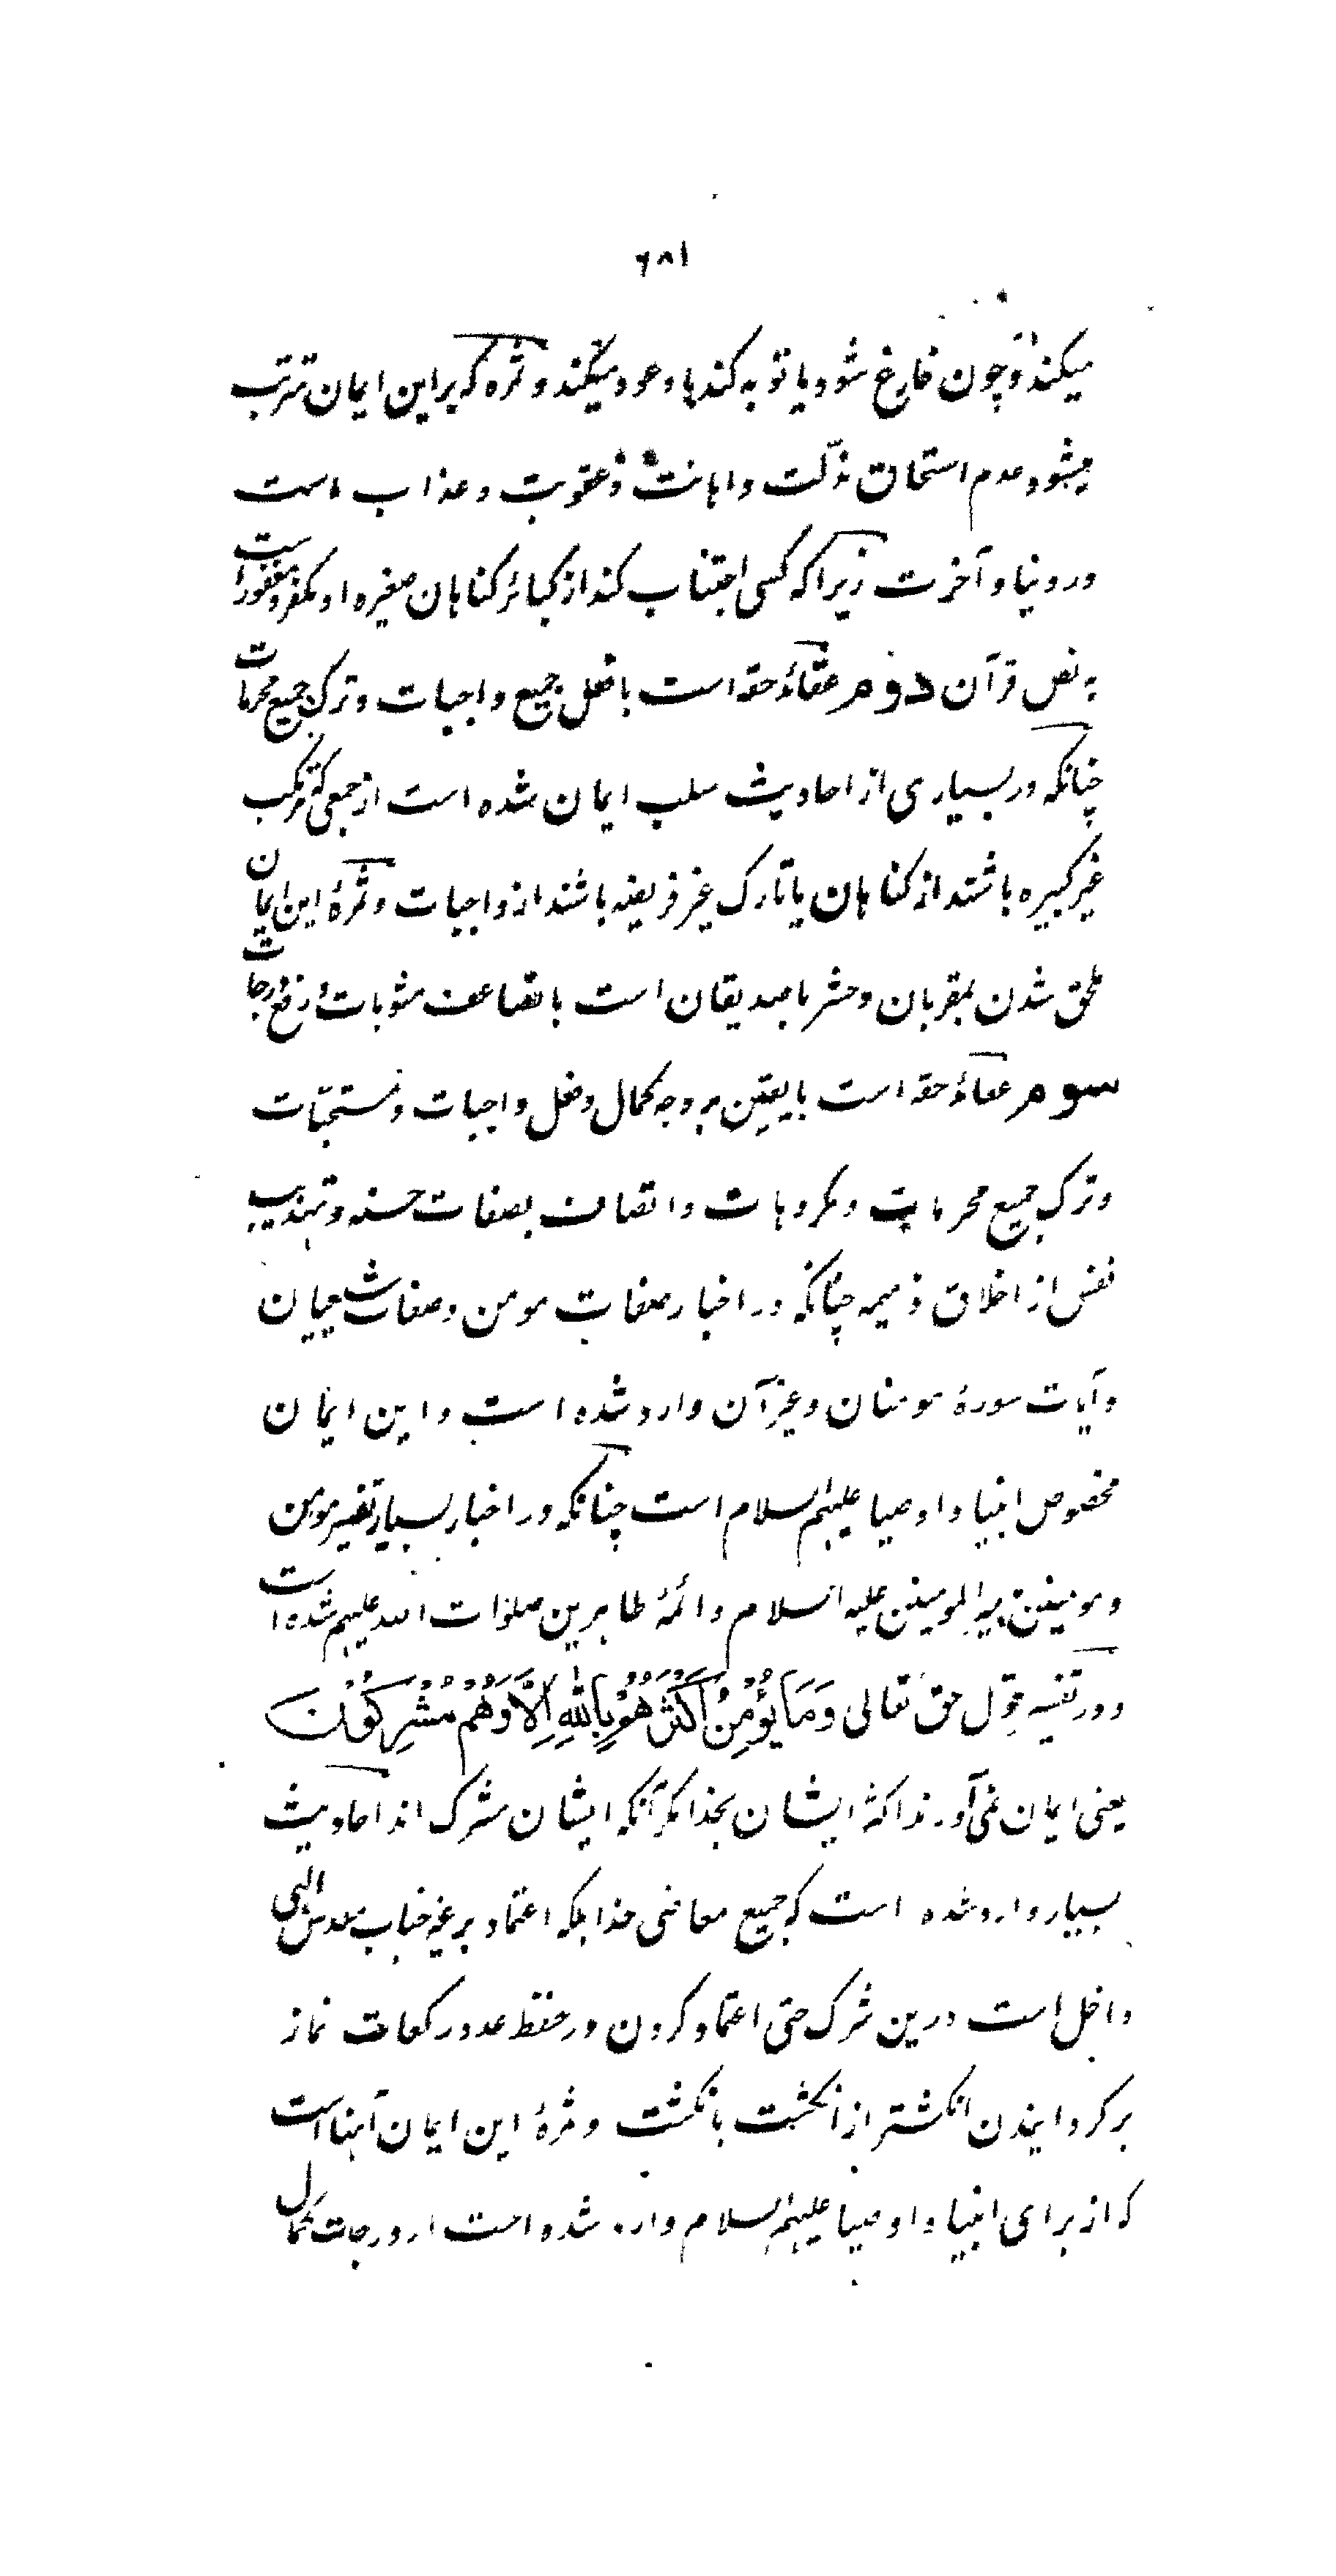 ۶۸۱
میکند و چون فارغ شود یا توبه کند یا و عود میکند و ثمره که براین ایمان مترتب
میشود عدم استحقاق مذلت واهانت و عقوبت وعذاب است
در دنیا و آخرت زیرا که کسی اجتناب کند از کبائر کناهان صغیره او مکفر و مغفور است
به نص قرآن دوم عقائد حقه است با فعل جمیع واجبات و ترک جمیع محرمات
چنانکه در بسیاری از احادیث سلب ایمان شده است از جمعی که مرتکب
غیر کبیره باشند از کناهان یا تارک غیر فریضه باشند از واجبات و ثمرهٔ این ایمان
ملحق شدن بمقربان و حشر با صدیقان است با تضاعف مثوبات و رفع درجات
سوم عقائد حقه است با یقین بر وجه کمال و فعل واجبات و مستحبّات
و ترک جمیع محرمات و مکروهات و اتصاف بصفات حسنه و تهذیب
نفس از اخلاق ذمیمه چنانکه در اخبار صفات مومن و صفات شیعیان
و آیات سورهٔ مومنان و غیر آن وارد شده است و این ایمان
مخصوص انبیا و اوصیا علیهم السلام است چنانکه در اخبار بسیار تفسیر مومن
و مومنین بامیر المومنین علیه السلام و ائمهٔ طاهرین صلوات الله علیهم شده است
و در تفسیر قول حق تعالی وَمَا يُؤْمِنُ أَكْثَرُهُمْ بِاللّٰهِ اِلَّا وَهُمْ مُشْرِكُوْنَ
یعنی ایمان نمی آورند اکثر ایشان بخدا مکر آنکه ایشان مشرک اند احادیث
بسیار وارد شده است که جمیع معاصی خدا بلکه اعتماد بر غیر جناب مقدس الهی
داخل است درین شرک حتی اعتماد کردن در حفظ عدد رکعات نماز
بر کردایندن انکشتر از انکشت بانکشت و ثمرهٔ این ایمان آنها است
که از برای انبیا و اوصیا علیهم السلام وارد شده است از درجات کمال